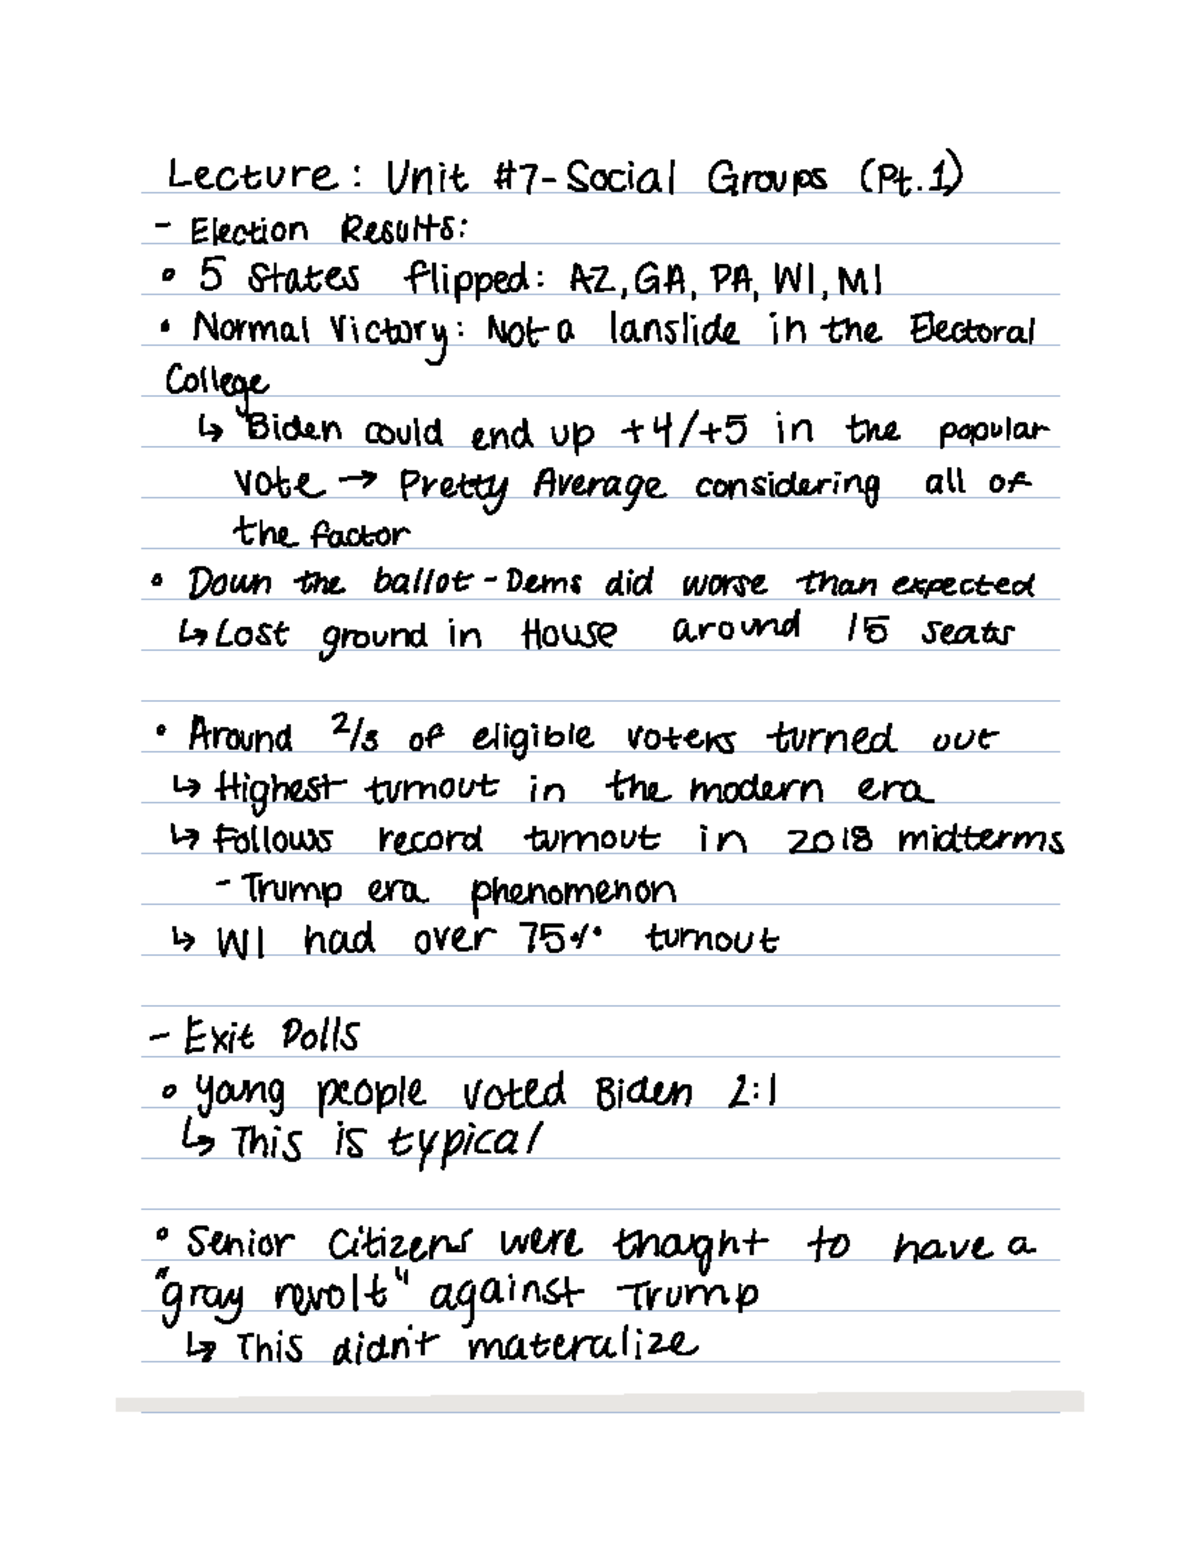 Lecture: Unit #7-Social Groups (Pt.1)
- Election Results:
• 5 States flipped: AZ, GA, PA, WI, MI
• Normal Victory: Not a lanslide in the Electoral
College
↳ Biden could end up +4/+5 in the popular
vote → Pretty Average considering all of
the factor
• Down the ballot - Dems did worse than expected
↳ Lost ground in House around 15 seats
• Around 2/3 of eligible voters turned out
↳ Highest turnout in the modern era
↳ Follows record turnout in 2018 midterms
- Trump era phenomenon
↳ WI had over 75% turnout
- Exit Polls
• Young people voted Biden 2:1
↳ This is typical
• Senior Citizens were thought to have a
"gray revolt" against Trump
↳ This didn't materalize